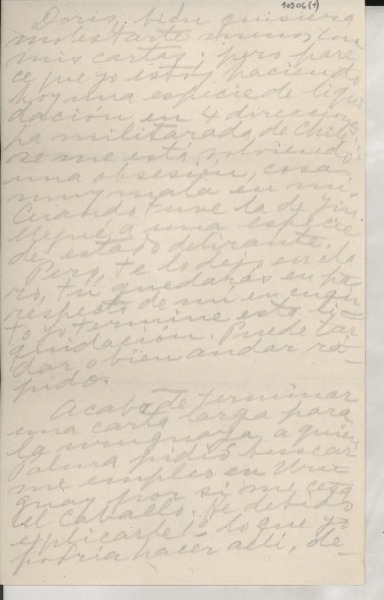 10506(1)
Doris, bien quisiera
molestarte menos con
mis cartas; pero pare-
ce que yo estoy haciendo
hoy una especie de liqui-
dación en 4 direcciones.
La militarada de Chile
se me está volviendo
una obsesión, cosa
muy mala en mí.
Cuando tuve la de Yin
llegué a una especie
de estado delirante.
Pero, te lo dejo en cla-
ro, tú quedarás en paz
respecto de mí en cuan-
to yo termine esta li-
quidación. Puede tar-
dar o bien andar rá-
pido.
Acabo de terminar
una carta larga para
la uruguaya a quien
Palma pidió buscar-
me empleo en Uru-
guay por si me cesa
el Caballo. He debido
explicarle 1º lo que yo
podría hacer allí, de-